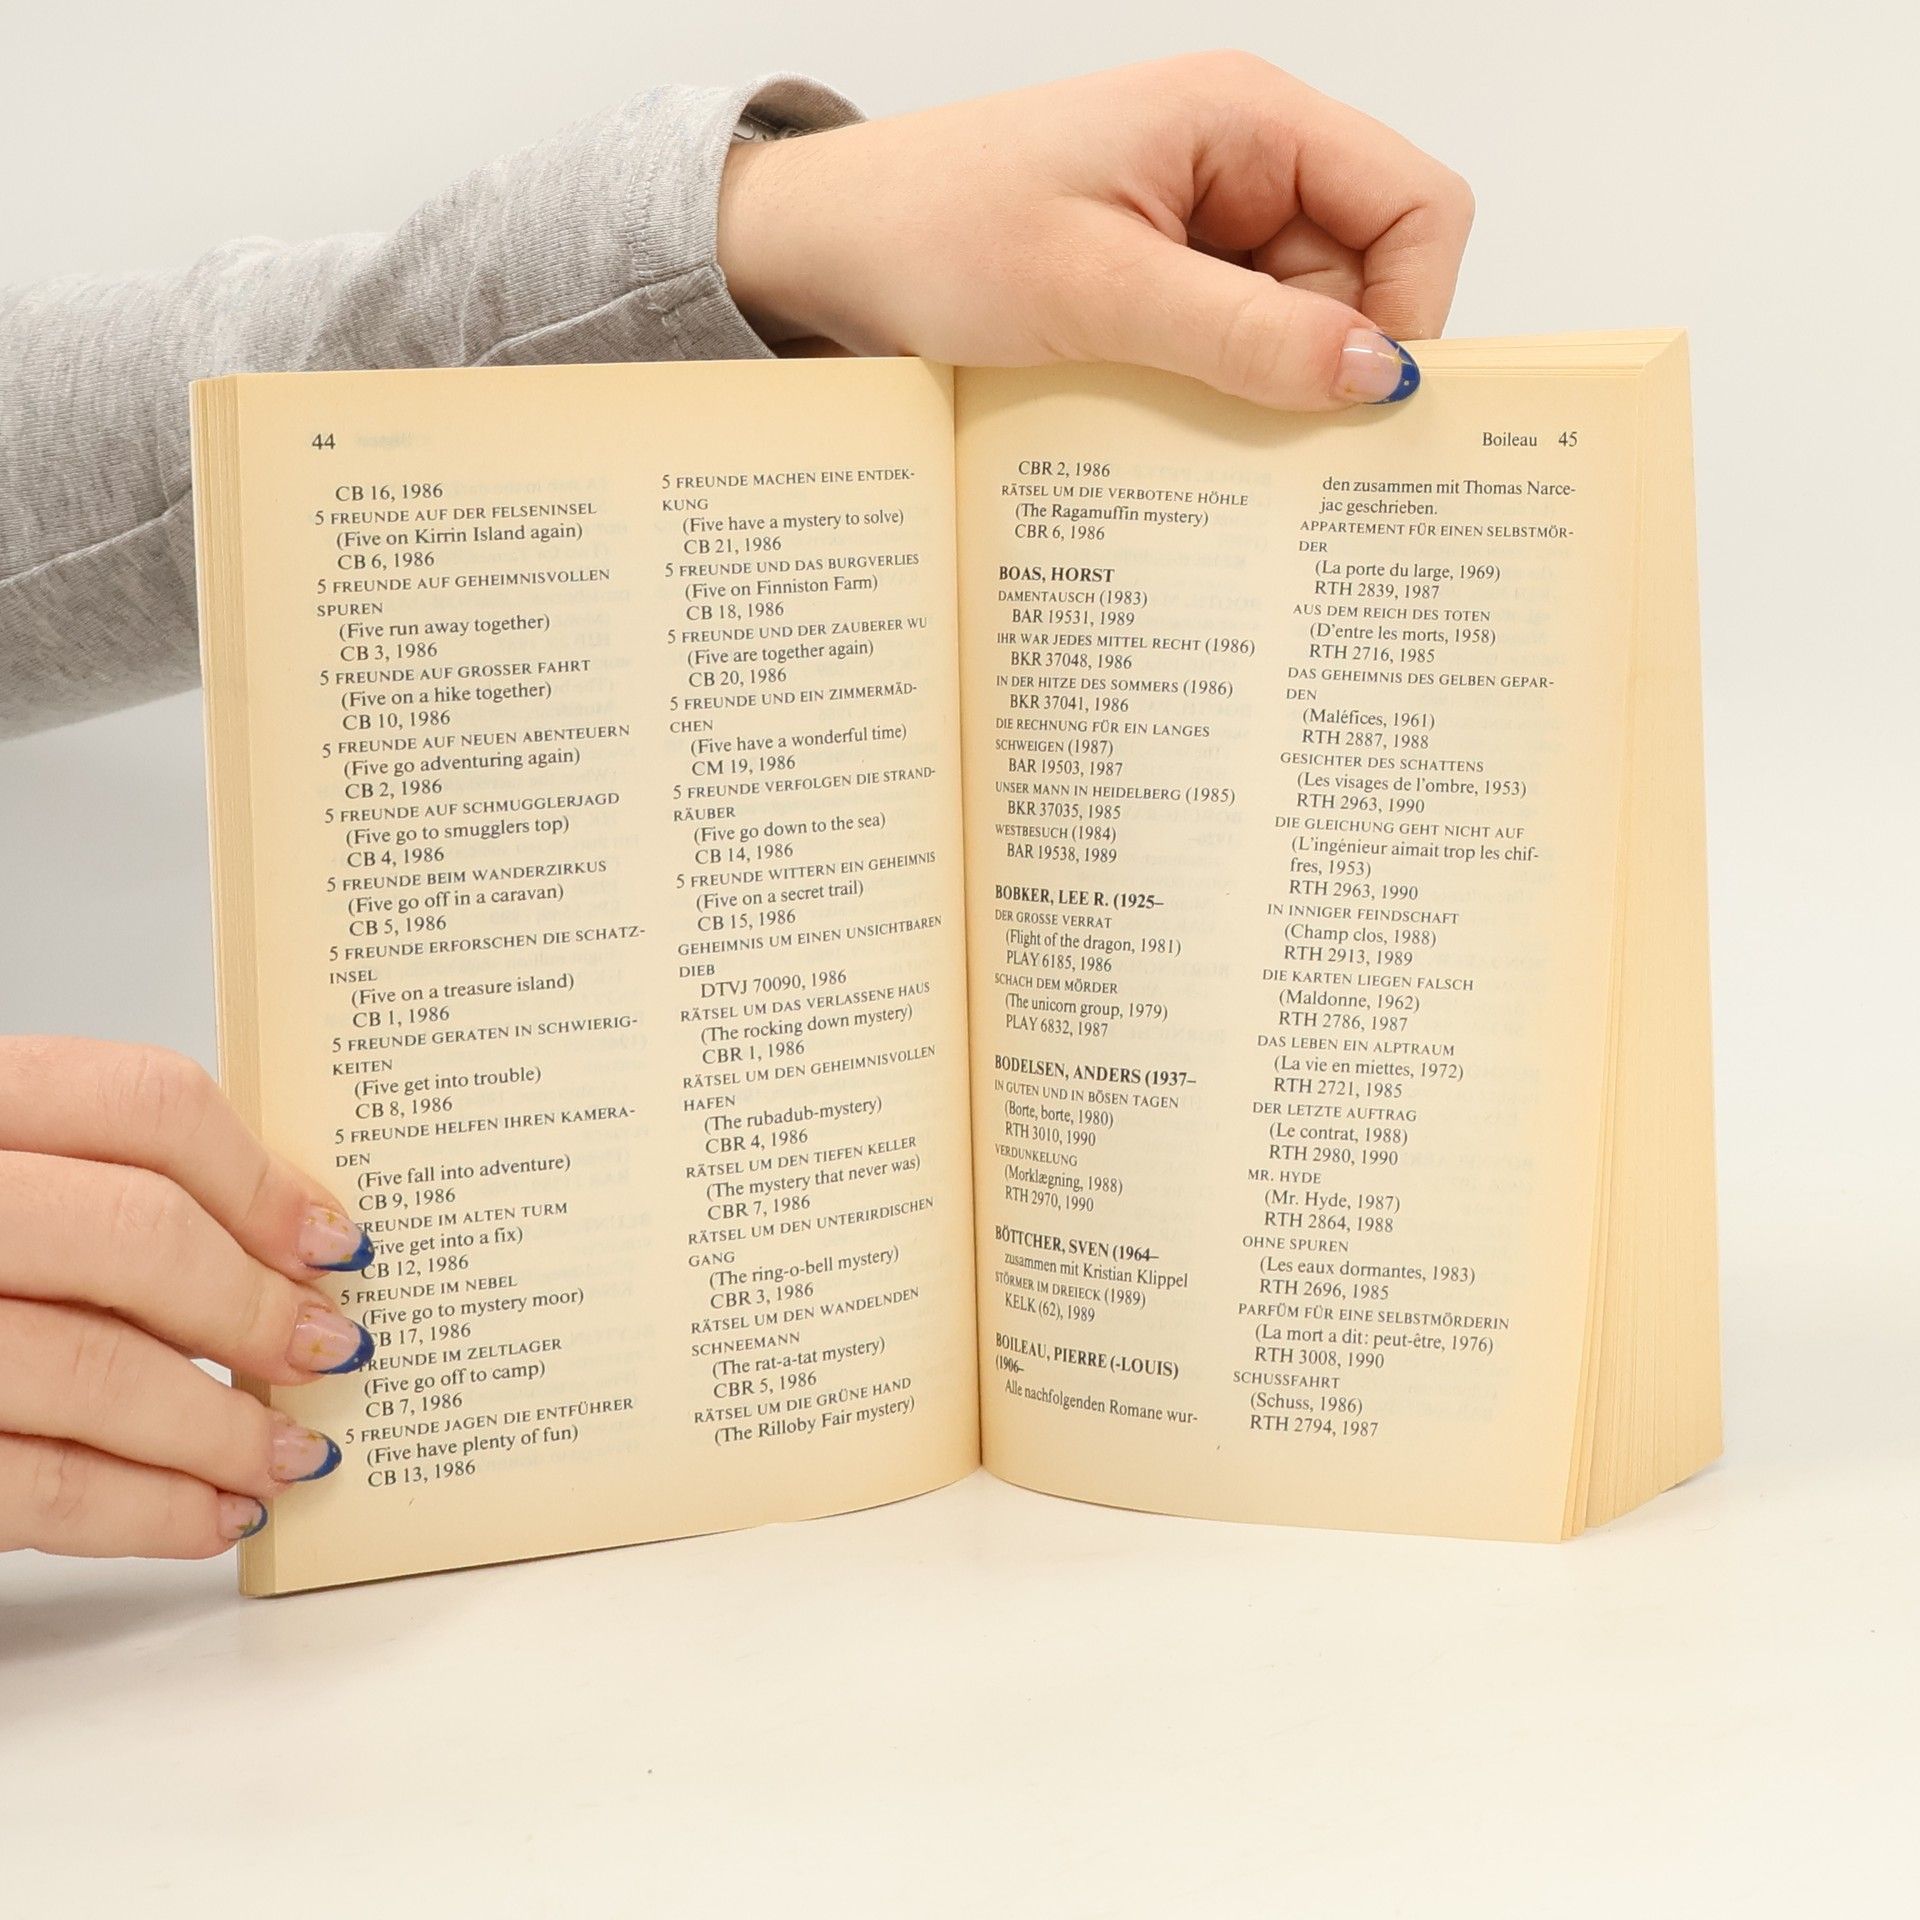 44
CB 16, 1986
5 FREUNDE AUF DER FELSENINSEL
(Five on Kirrin Island again)
CB 6, 1986
5 FREUNDE AUF GEHEIMNISVOLLEN
SPUREN
(Five run away together)
CB 3, 1986
5 FREUNDE AUF GROSSER FAHRT
(Five on a hike together)
CB 10, 1986
5 FREUNDE AUF NEUEN ABENTEUERN
(Five go adventuring again)
CB 2, 1986
5 FREUNDE AUF SCHMUGGLERJAGD
(Five go to smugglers top)
CB 4, 1986
5 FREUNDE BEIM WANDERZIRKUS
(Five go off in a caravan)
CB 5, 1986
5 FREUNDE ERFORSCHEN DIE SCHATZ-
INSEL
(Five on a treasure island)
CB 1, 1986
5 FREUNDE GERATEN IN SCHWIERIG-
KEITEN
(Five get into trouble)
CB 8, 1986
5 FREUNDE HELFEN IHREN KAMERA-
DEN
(Five fall into adventure)
CB 9, 1986
FREUNDE IM ALTEN TURM
Five get into a fix)
CB 12, 1986
5 FREUNDE IM NEBEL
(Five go to mystery moor)
CB 17, 1986
FREUNDE IM ZELTLAGER
(Five go off to camp)
CB 7, 1986
5 FREUNDE JAGEN DIE ENTFÜHRER
(Five have plenty of fun)
CB 13, 1986
5 FREUNDE MACHEN EINE ENTDEK-
KUNG
(Five have a mystery to solve)
CB 21, 1986
5 FREUNDE UND DAS BURGVERLIES
(Five on Finniston Farm)
CB 18, 1986
5 FREUNDE UND DER ZAUBERER WU
(Five are together again)
CB 20, 1986
5 FREUNDE UND EIN ZIMMERMÄD-
CHEN
(Five have a wonderful time)
CM 19, 1986
5 FREUNDE VERFOLGEN DIE STRAND-
RÄUBER
(Five go down to the sea)
CB 14, 1986
5 FREUNDE WITTERN EIN GEHEIMNIS
(Five on a secret trail)
CB 15, 1986
GEHEIMNIS UM EINEN UNSICHTBAREN
DIEB
DTVJ 70090, 1986
RÄTSEL UM DAS VERLASSENE HAUS
(The rocking down mystery)
CBR 1, 1986
RÄTSEL UM DEN GEHEIMNISVOLLEN
HAFEN
(The rubadub-mystery)
CBR 4, 1986
RÄTSEL UM DEN TIEFEN KELLER
(The mystery that never was)
CBR 7, 1986
RÄTSEL UM DEN UNTERIRDISCHEN
GANG
(The ring-o-bell mystery)
CBR 3, 1986
RÄTSEL UM DEN WANDELNDEN
SCHNEEMANN
(The rat-a-tat mystery)
CBR 5, 1986
RÄTSEL UM DIE GRÜNE HAND
(The Rilloby Fair mystery)
Boileau 45
CBR 2, 1986
RÄTSEL UM DIE VERBOTENE HÖHLE
(The Ragamuffin mystery)
CBR 6, 1986
BOAS, HORST
DAMENTAUSCH (1983)
BAR 19531, 1989
IHR WAR JEDES MITTEL RECHT (1986)
BKR 37048, 1986
IN DER HITZE DES SOMMERS (1986)
BKR 37041, 1986
DIE RECHNUNG FÜR EIN LANGES
SCHWEIGEN (1987)
BAR 19503, 1987
UNSER MANN IN HEIDELBERG (1985)
BKR 37035, 1985
WESTBESUCH (1984)
BAR 19538, 1989
BOBKER, LEE R. (1925–
DER GROSSE VERRAT
(Flight of the dragon, 1981)
PLAY 6185, 1986
SCHACH DEM MÖRDER
(The unicorn group, 1979)
PLAY 6832, 1987
BODELSEN, ANDERS (1937–
IN GUTEN UND IN BÖSEN TAGEN
(Borte, borte, 1980)
RTH 3010, 1990
VERDUNKELUNG
(Morklægning, 1988)
RTH 2970, 1990
BÖTTCHER, SVEN (1964–
zusammen mit Kristian Klippel
STÖRMER IM DREIECK (1989)
KELK (62), 1989
BOILEAU, PIERRE (-LOUIS)
(1906–
Alle nachfolgenden Romane wur-
den zusammen mit Thomas Narce-
jac geschrieben.
APPARTEMENT FÜR EINEN SELBSTMÖR-
DER
(La porte du large, 1969)
RTH 2839, 1987
AUS DEM REICH DES TOTEN
(D'entre les morts, 1958)
RTH 2716, 1985
DAS GEHEIMNIS DES GELBEN GEPAR-
DEN
(Maléfices, 1961)
RTH 2887, 1988
GESICHTER DES SCHATTENS
(Les visages de l'ombre, 1953)
RTH 2963, 1990
DIE GLEICHUNG GEHT NICHT AUF
(L'ingénieur aimait trop les chif-
fres, 1953)
RTH 2963, 1990
IN INNIGER FEINDSCHAFT
(Champ clos, 1988)
RTH 2913, 1989
DIE KARTEN LIEGEN FALSCH
(Maldonne, 1962)
RTH 2786, 1987
DAS LEBEN EIN ALPTRAUM
(La vie en miettes, 1972)
RTH 2721, 1985
DER LETZTE AUFTRAG
(Le contrat, 1988)
RTH 2980, 1990
MR. HYDE
(Mr. Hyde, 1987)
RTH 2864, 1988
OHNE SPUREN
(Les eaux dormantes, 1983)
RTH 2696, 1985
PARFÜM FÜR EINE SELBSTMÖRDERIN
(La mort a dit: peut-être, 1976)
RTH 3008, 1990
SCHUSSFAHRT
(Schuss, 1986)
RTH 2794, 1987